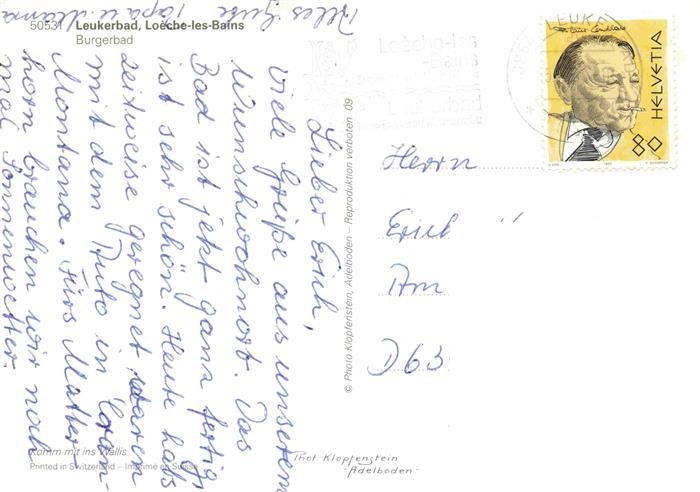 50531 Leukerbad, Loèche-les-Bains
Burgerbad
Lieber Erich,
viele Grüße aus unserem
Wunschwohnort. Das
Bad ist jetzt ganz fertig
ist sehr schön. Heute hats
zeitweise geregnet, waren
mit dem Auto in Cran-
Montana. Fürs Matter-
horn brauchen wir noch
mal Sonnenwetter.
Alles Liebe Papa u. Mama
Komm mit ins Wallis
Printed in Switzerland – Imprimé en Suisse
© Photo Klopfenstein, Adelboden – Reproduktion verboten 09
Phot. Klopfenstein
-Adelboden-
LEUKE
Loèche-les
-Bains
HELVETIA
80
Herrn
Erich
Am
D63